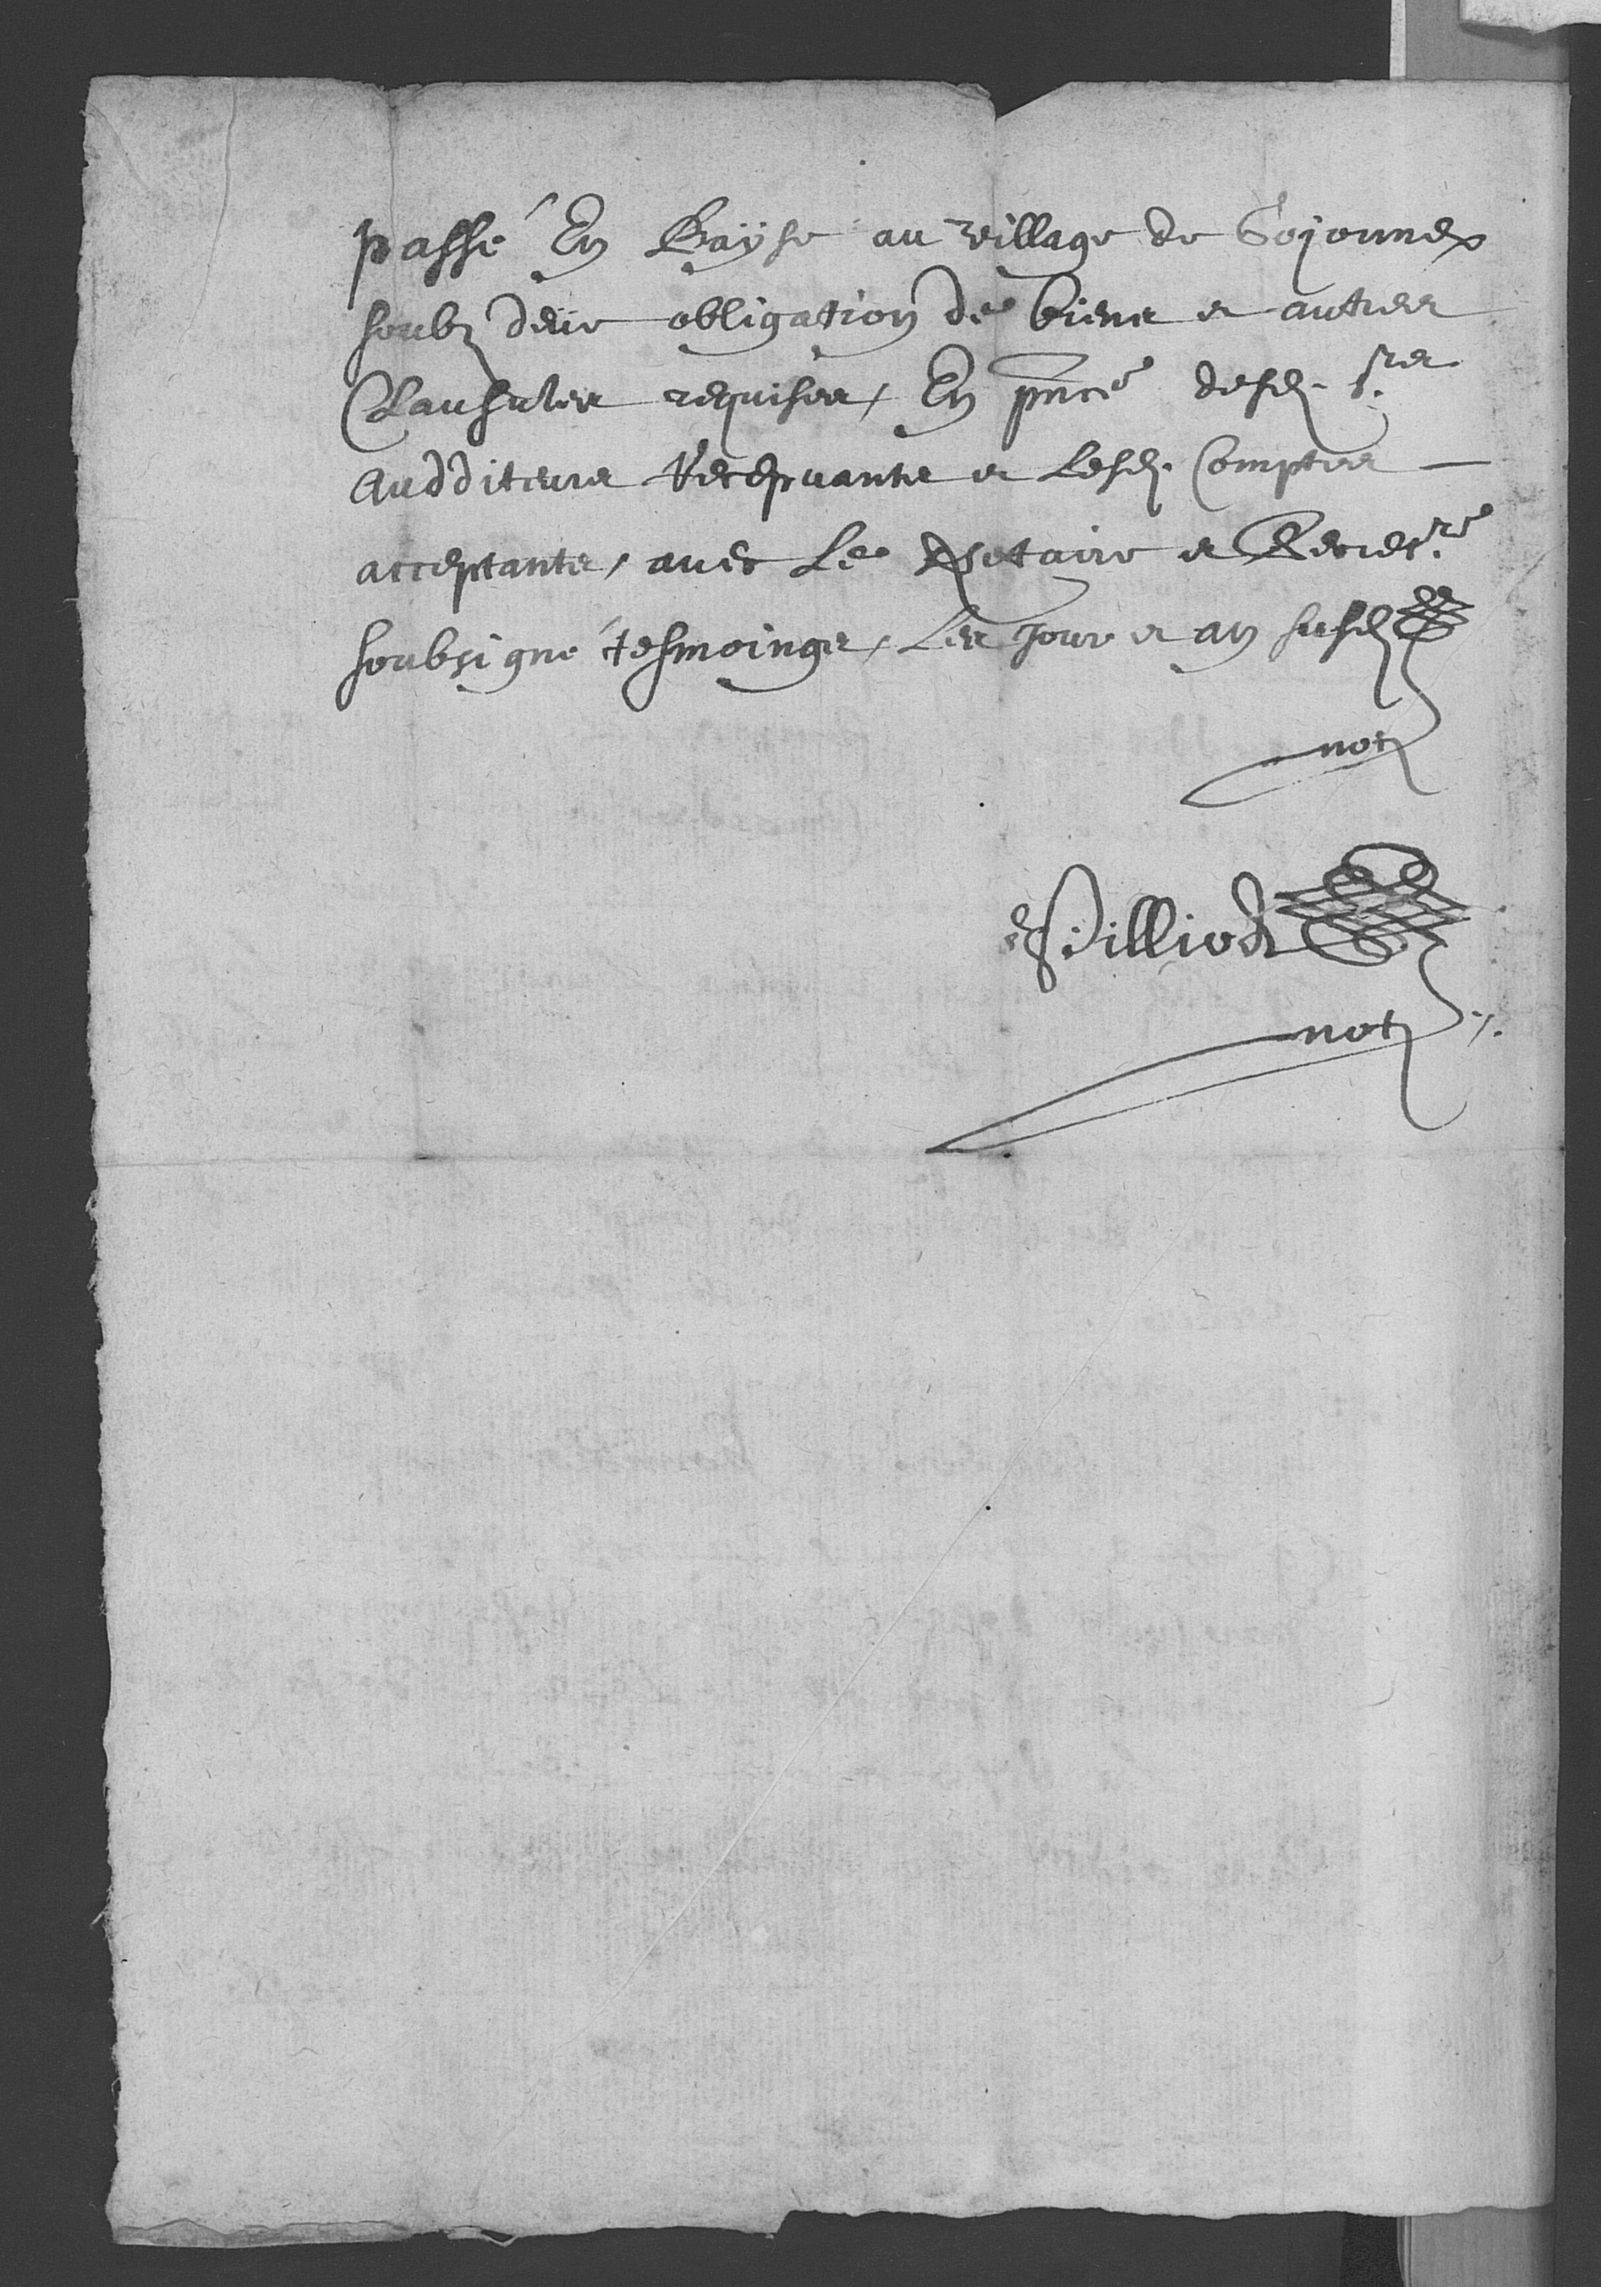 passé En Bayse au village de Goyonnex
soubz deue obligation de biens et autres
Clausules requises, En pnce desd. srs
Audditeurs Recepvants et Lesd. Comptes
acceptants, avec Le Notaire et
soubsigné tesmoings, Les Jour et an susd
not
Villiod
not